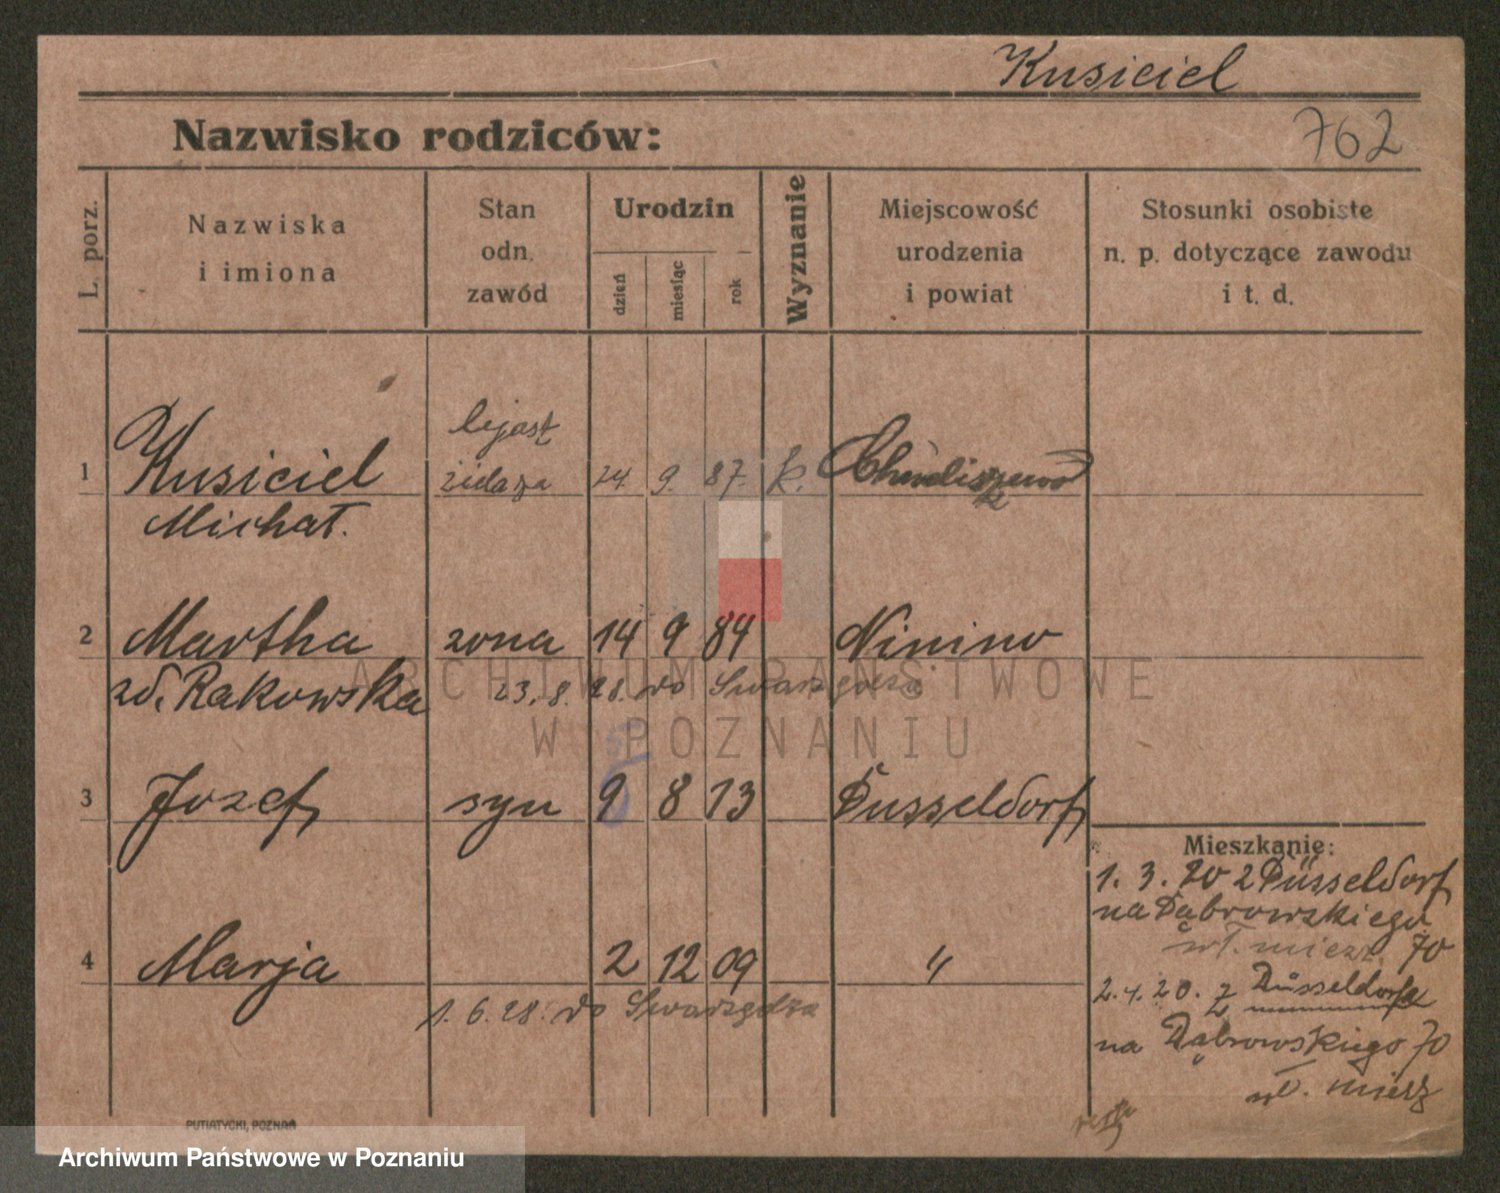 Kusiciel
Nazwisko rodziców:
762
L. porz.
Nazwiska
i imiona
Stan
odn.
zawód
Urodzin
dzień
miesiąc
rok
Wyznanie
Miejscowość
urodzenia
i powiat
Stosunki osobiste
n. p. dotyczące zawodu
i t. d.
1 Kusiciel 24 9. 87. k.
Michał.
2 Martha zona 14 9 84 Ninino
zd. Rakowska 23. 8. 28. do Swarzędza
3 Jozef syn 9 8 13 Dusseldorf
4 Marja 2 12 09 "
1. 6. 28. do Swarzędza
Mieszkanie:
1. 3. 20 z Düsseldorf
na Dąbrowskiego
wł. miesz. 70
2. 4. 20. z Düsseldorfa
na Dąbrowskiego 70
wł. miesz
PUTIATYCKI, POZNAŃ
ARCHIWUM PAŃSTWOWE
W POZNANIU
Archiwum Państwowe w Poznaniu